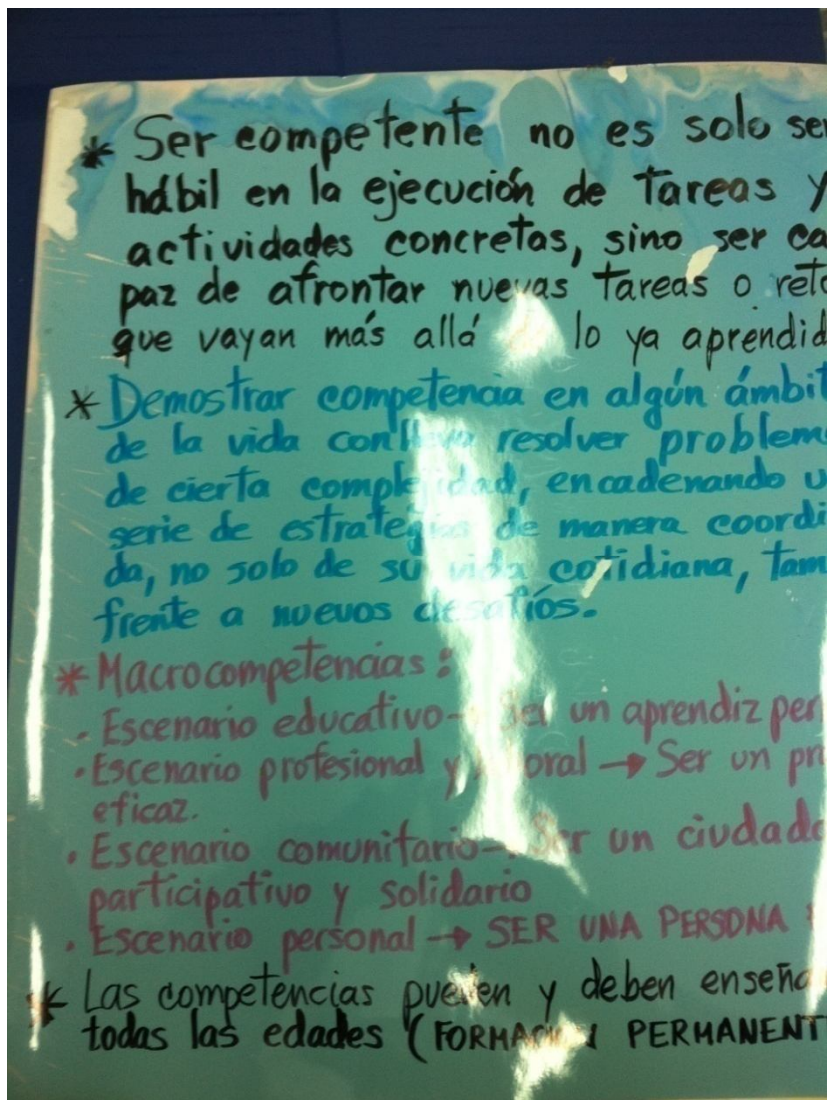 * Ser competente no es solo ser
hábil en la ejecución de tareas y
actividades concretas, sino ser ca
paz de afrontar nuevas tareas o reto
que vayan más allá lo ya aprendid
* Demostrar competencia en algún ámbit
de la vida conlleva resolver problem
de cierta complejidad, encadenando u
serie de estrategias de manera coordi
da, no solo de su vida cotidiana, tam
frente a nuevos desafíos.
* Macrocompetencias:
• Escenario educativo → Ser un aprendiz per
• Escenario profesional y laboral → Ser un pr
eficaz.
• Escenario comunitario → Ser un ciudada
participativo y solidario
• Escenario personal → SER UNA PERSONA
* Las competencias pueden y deben enseña
todas las edades (FORMACIÓN PERMANENT